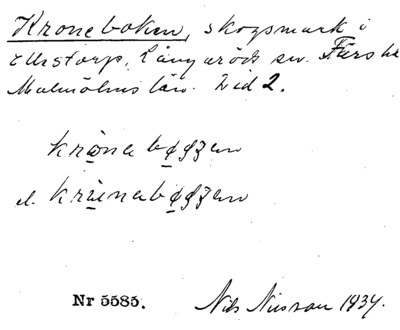 Kroneboken, skogsmark i
Ellestorp, Långaröds sn. Färs hd
Malmöhus län. Bid 2.
kronabøgʒan
el. kranabøgʒan
Nr 5585.
Nils Nilsson 1934.